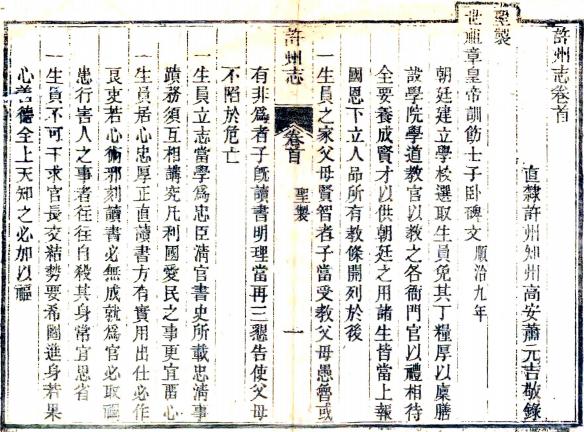 許州志卷首
直隸許州知州高安蕭元吉敬錄
聖製
世祖章皇帝訓飭士子卧碑文 順治九年
朝廷建立學校選取生員免其丁糧厚以廩膳
設學院學道教官以教之各衙門官以禮相待
全要養成賢才以供朝廷之用諸生皆當上報
國恩下立人品所有教條開列於後
一生員之家父母賢智者子當受教父母愚魯或
許州志
卷首
聖製
一
有非爲者子旣讀書明理當再三懇告使父母
不陷於危亡
一生員立志當學爲忠臣清官書史所載忠清事
蹟務須互相講究凡利國愛民之事更宜畱心
一生員居心忠厚正直讀書方有實用出仕必作
良吏若心術邪刻讀書必無成就爲官必取禍
患行害人之事者往往自殺其身常宜思省
一生員不可干求官長交結勢要希圖進身若果
心善德全上天知之必加以福